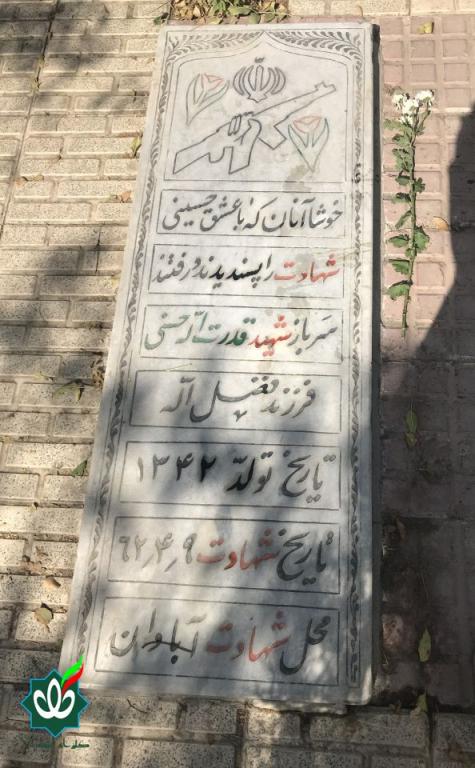 خوشا آنان که با عشق حسینی
شهادت را پسندیدند و رفتند
سرباز شهید قدرت اله حسنی
فرزند فضل اله
تاریخ تولد ۱۳۴۲
تاریخ شهادت ۶۲٫۴٫۹
محل شهادت آبادان